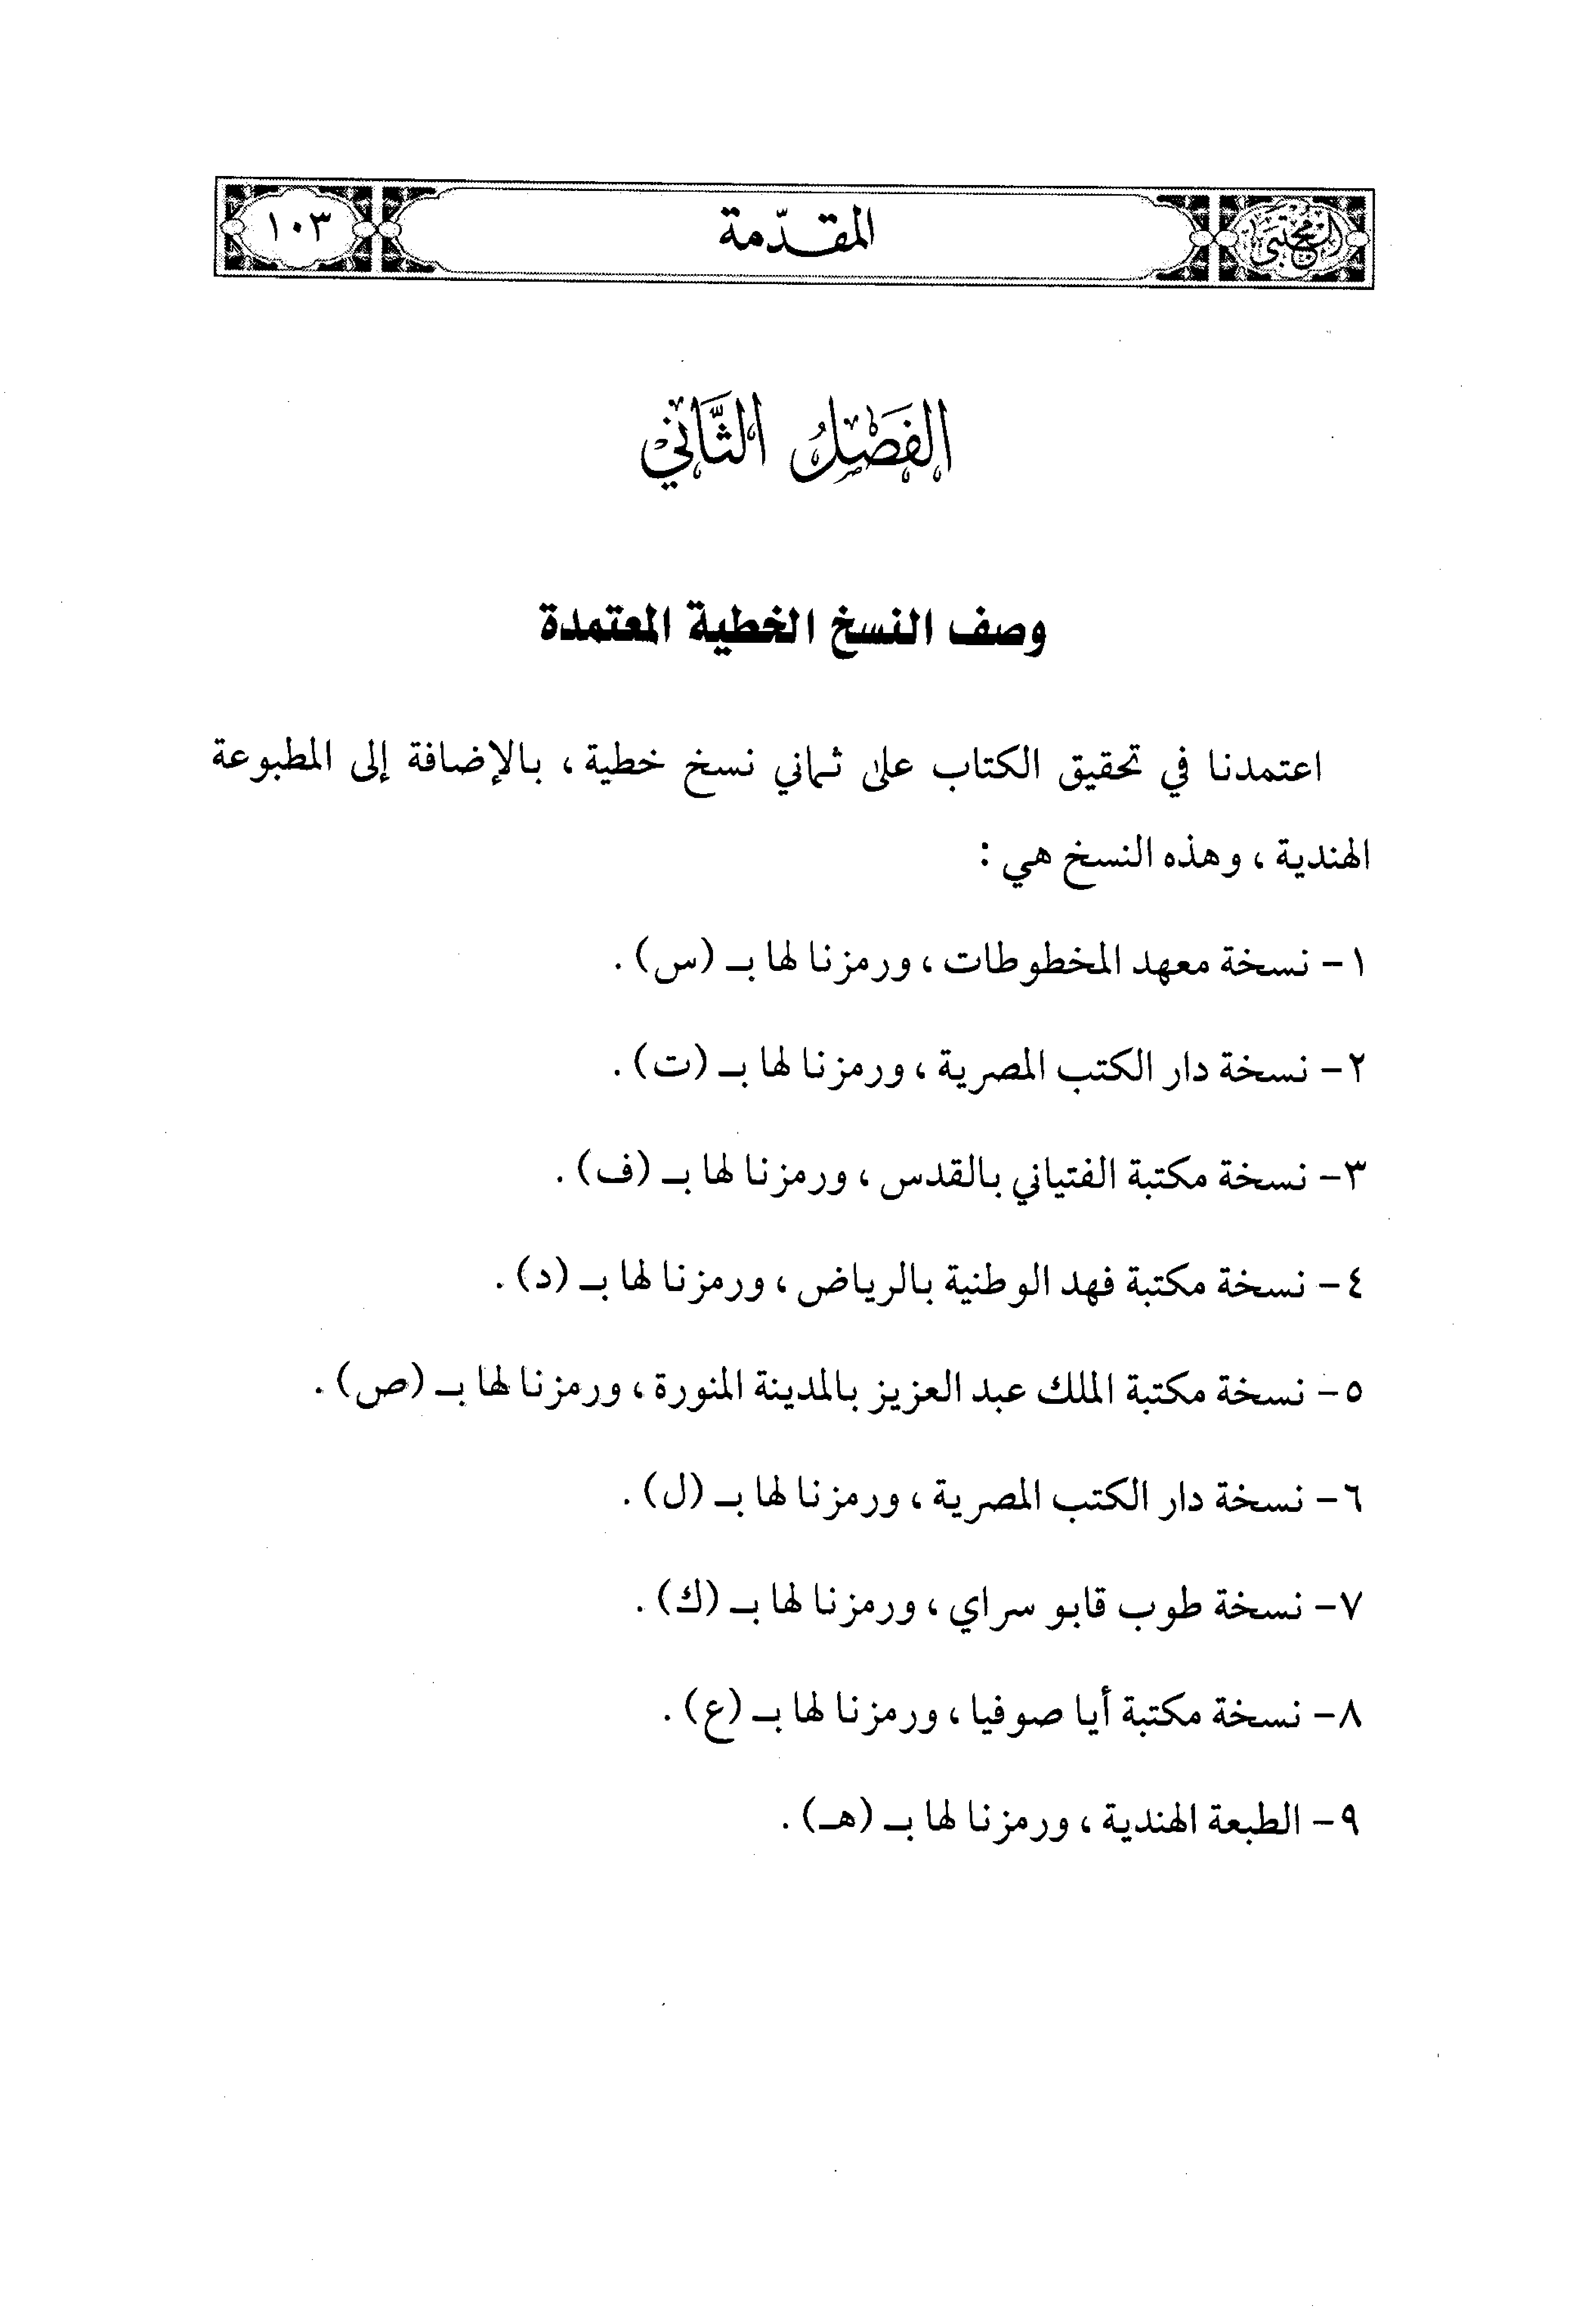 المجتبى
المقدّمة
١٠٣
الفَصْلُ الثَّانِي
وصف النسخ الخطية المعتمدة
اعتمدنا في تحقيق الكتاب على ثماني نسخ خطية ، بالإضافة إلى المطبوعة
الهندية ، وهذه النسخ هي :
١- نسخة معهد المخطوطات ، ورمزنا لها بـ (س) .
٢- نسخة دار الكتب المصرية ، ورمزنا لها بـ (ت) .
٣- نسخة مكتبة الفتياني بالقدس ، ورمزنا لها بـ (ف) .
٤- نسخة مكتبة فهد الوطنية بالرياض ، ورمزنا لها بـ (د) .
٥- نسخة مكتبة الملك عبد العزيز بالمدينة المنورة ، ورمزنا لها بـ (ص) .
٦- نسخة دار الكتب المصرية ، ورمزنا لها بـ (ل) .
٧- نسخة طوب قابو سراي ، ورمزنا لها بـ (ك) .
٨- نسخة مكتبة أيا صوفيا ، ورمزنا لها بـ (ع) .
٩- الطبعة الهندية ، ورمزنا لها بـ (هـ) .